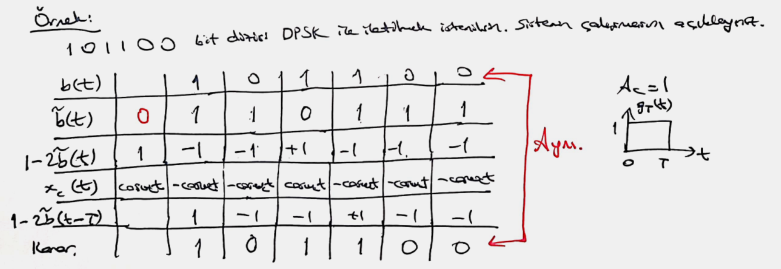 Örnek:
101100 bit dizisi DPSK ile iletilmek istenilsin. Sistem çalışmasını açıklayınız.
b(t) 1 0 1 1 0 0
b̃(t) 0 1 1 0 1 1 1
1-2b̃(t) 1 -1 -1 +1 -1 -1 -1
x_c(t) cosωct -cosωct -cosωct cosωct -cosωct -cosωct -cosωct
1-2b̃(t-T) 1 -1 -1 +1 -1 -1
Karar. 1 0 1 1 0 0
Aynı.
A_c=1
g_T(t)
1
0 T t